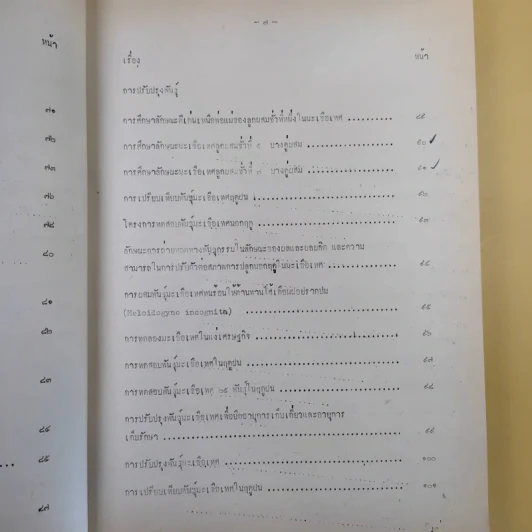 หน้า
๗๑
๗๒
๗๓
๗๖
๗๘
๘๐
๘๑
๘๒
๘๓
๘๔
๘๕
๘๗
- ๗ -
เรื่อง หน้า
การปรับปรุงพันธุ์
การศึกษาลักษณะดีเด่นเหนือพ่อแม่ของลูกผสมชั่วที่หนึ่งในมะเขือเทศ .......... ๘๙
การศึกษาลักษณะมะเขือเทศลูกผสมชั่วที่ ๕ บางคู่ผสม ........ ๙๐
การศึกษาลักษณะมะเขือเทศลูกผสมชั่วที่ ๓ บางคู่ผสม ........ ๙๑
การเปรียบเทียบพันธุ์มะเขือเทศฤดูฝน ........ ๙๒
โครงการทดสอบพันธุ์มะเขือเทศนอกฤดู ........ ๙๓
ลักษณะการถ่ายทอดทางพันธุกรรมในลักษณะของผลและผลผลิต และความ
สามารถในการปรับตัวต่อสภาพการปลูกนอกฤดูในมะเขือเทศ ........ ๙๔
การผสมพันธุ์มะเขือเทศทนร้อนให้ต้านทานไส้เดือนฝอยรากปม
(Meloidogyne incognita) ........ ๙๕
การทดลองมะเขือเทศในแง่เศรษฐกิจ ........ ๙๖
การทดสอบพันธุ์มะเขือเทศในฤดูฝน ........ ๙๗
การทดสอบพันธุ์มะเขือเทศ ๒๕ พันธุ์ในฤดูฝน ........ ๙๘
การปรับปรุงพันธุ์มะเขือเทศเพื่อยืดอายุการเก็บเกี่ยวและอายุการ
เก็บรักษา ........ ๙๙
การปรับปรุงพันธุ์มะเขือเทศ ........ ๑๐๐
การเปรียบเทียบพันธุ์มะเขือเทศในฤดูฝน ........ ๑๐๑